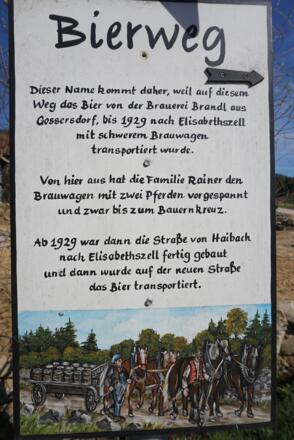 Bierweg
Dieser Name kommt daher, weil auf diesem
Weg das Bier von der Brauerei Brandl aus
Gossersdorf, bis 1929 nach Elisabethszell
mit schwerem Brauwagen
transportiert wurde.
Von hier aus hat die Familie Rainer den
Brauwagen mit zwei Pferden vorgespannt
und zwar bis zum Bauernkreuz.
Ab 1929 war dann die Straße von Haibach
nach Elisabethszell fertig gebaut
und dann wurde auf der neuen Straße
das Bier transportiert.